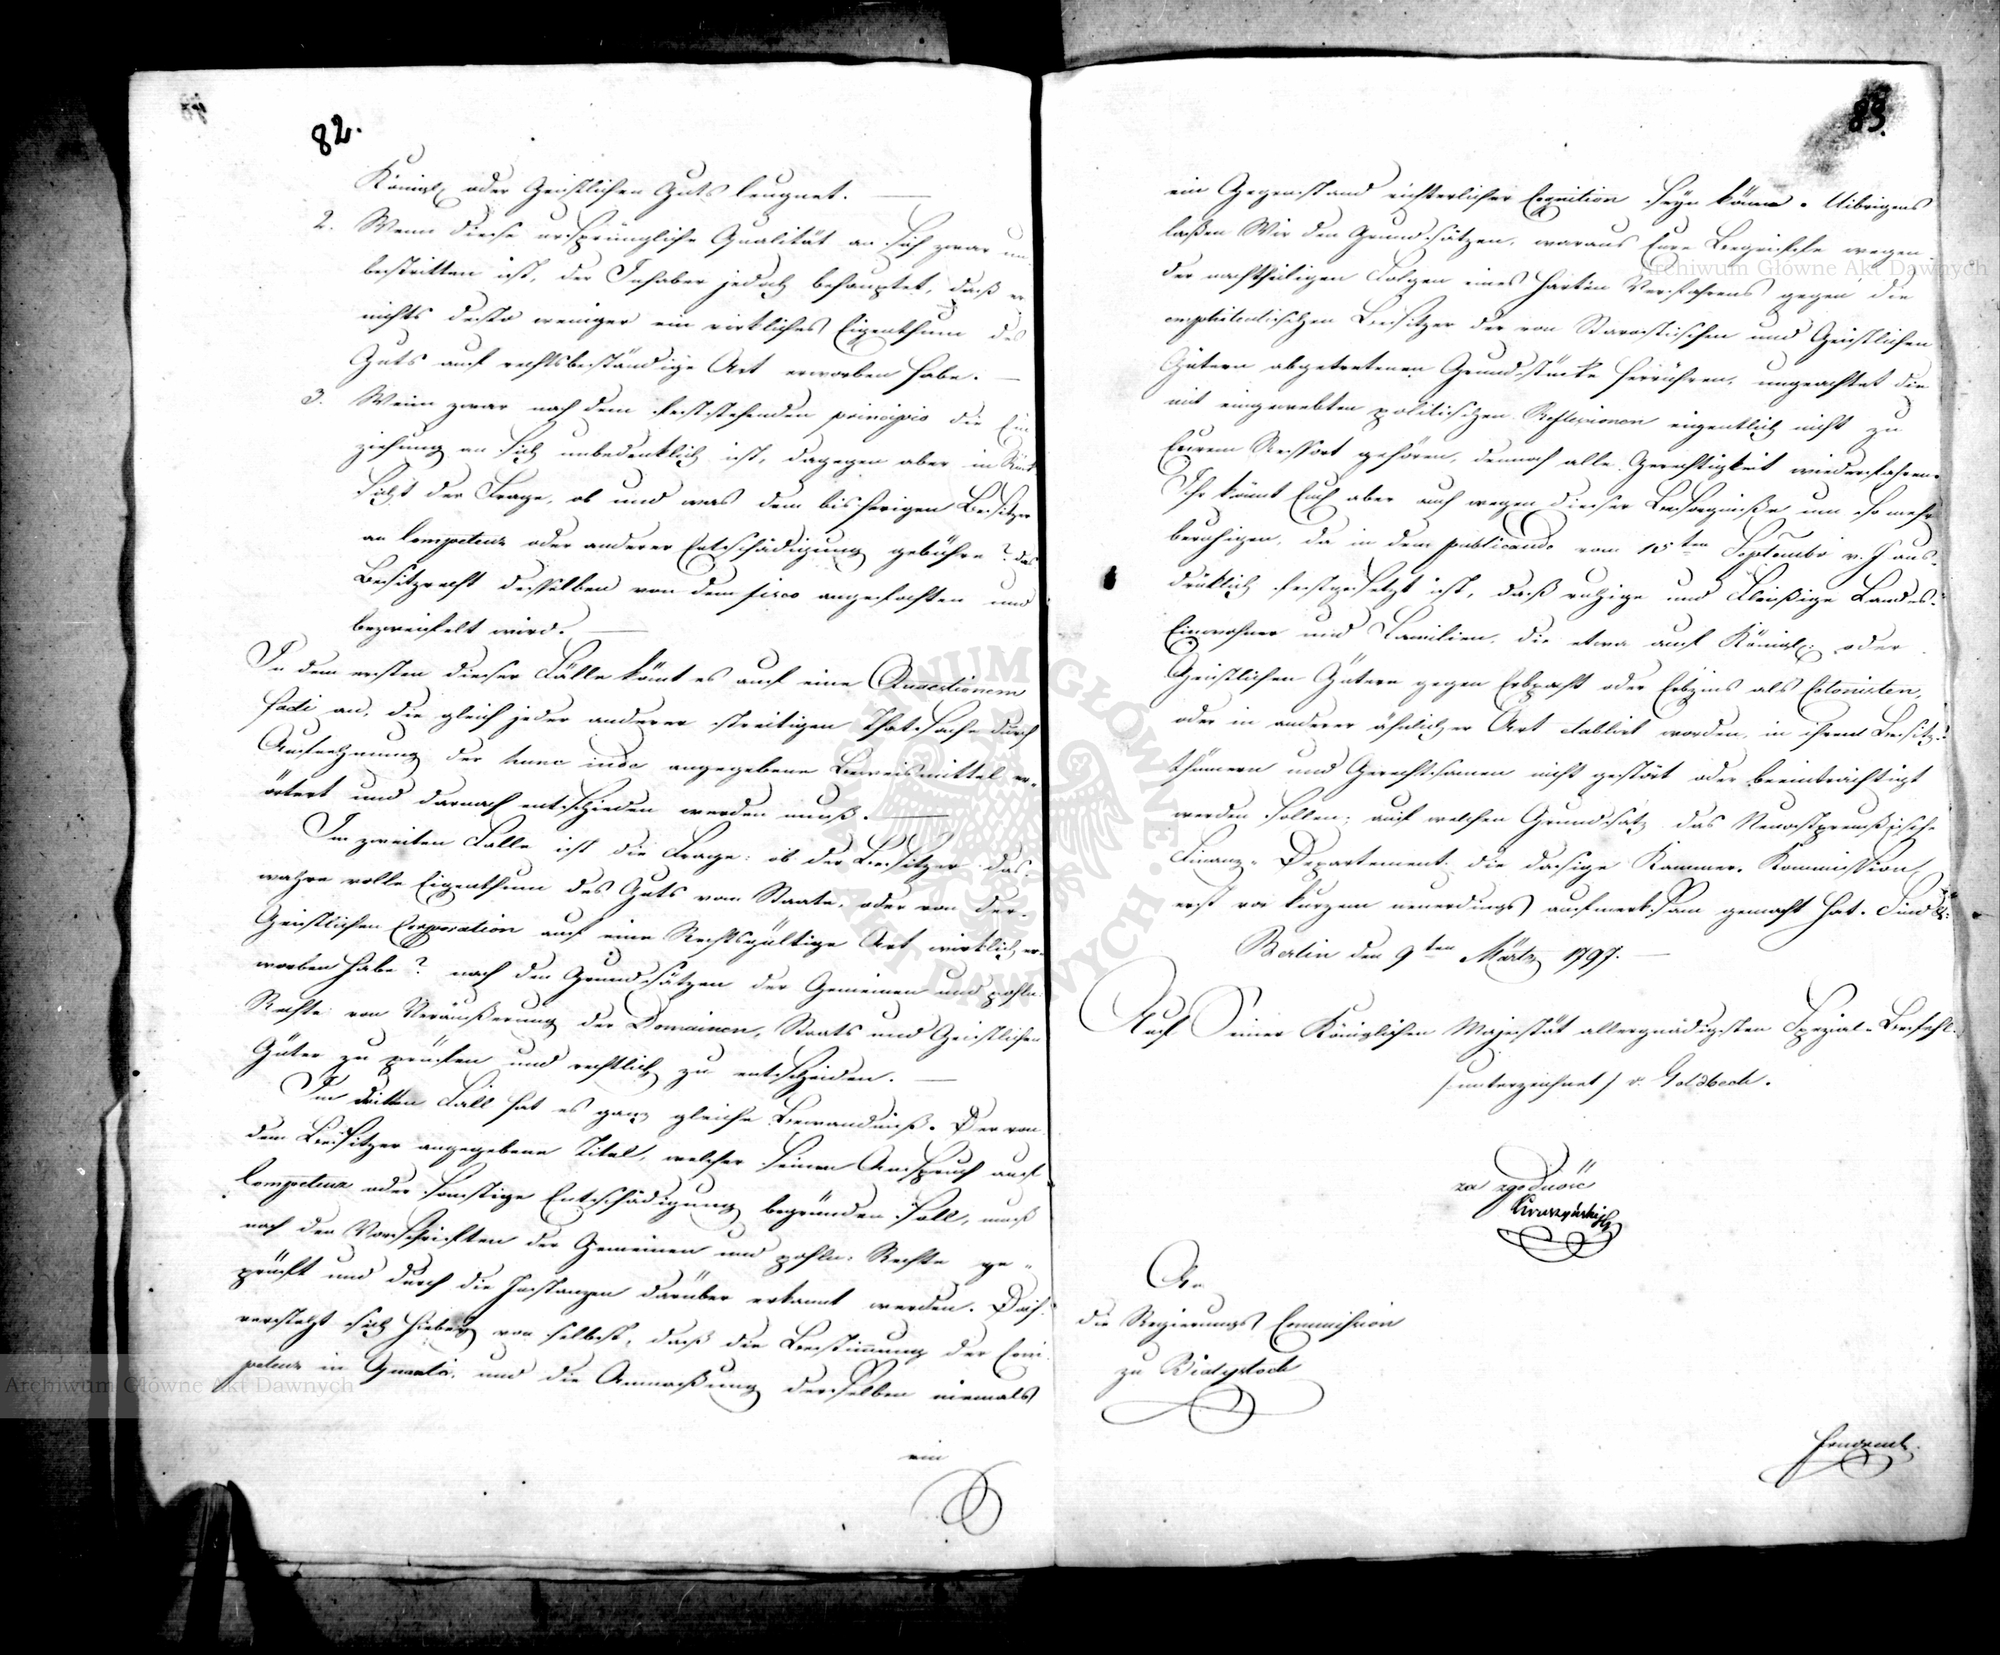 82.
Königl. oder Geistlichen Guts leugnet. —
2. Wenn diese ursprüngliche Qualität an sich zwar un-
bestritten ist, der Inhaber jedoch behauptet, daß er
nichts desto weniger ein wirkliches Eigenthum des
Guts auf rechtsbeständige Art erworben habe. —
3. Wenn zwar nach dem feststehenden principio die Ein
ziehung an sich unbedenklich ist, dagegen aber in Rück
sicht der Frage, ob und was dem bisherigen Besitzer
an Competenz oder anderer Entschädigung gebühre? das
Besitzrecht desselben von dem fisco angefochten und
bezweifelt wird. —
In dem ersten dieser Fälle kömt es auf eine Quaestionem
facti an, die gleich jeder anderer streitigen Thatsache durch
Aufnehmung der hinc inde angegebene Beweismittel er-
örtert und darnach entschieden werden muß. —
Im zweiten Falle ist die Frage: ob der Besitzer das
wahre volle Eigenthum des Guts vom Staate, oder von der
Geistlichen Corporation auf eine Rechtsgültige Art wirklich er-
worben habe? nach den Grundsätzen der Gemeinen und pohln.
Rechte von Veräußerung der Domainen, Staats und Geistlichen
Güter zu prüfen und rechtlich zu entscheiden. —
Im dritten Fall hat es ganz gleiche Bewandniß. Der von
dem Besitzer angegebene Titel, welcher seinen Anspruch auf
Competenz oder sonstige Entschädigung begründen soll, muß
nach den Vorschriften der Gemeinen und pohln: Rechte ge-
prüft und durch die Instanzen darüber erkannt werden.
versteht sich hiebey von selbst, daß die Bestimmung der Com
petenz in Quanto, und die Anmaßung derselben niemals
ein
83.
ein Gegenstand richterlicher Cognition seyn könne. Uibrigens
laßen Wir den Grundsätzen, woraus Eure Begriffe wegen
der nachtheiligen Folgen eines harten Verfahrens gegen die
emphiteutischen Besitzer der von Starosteischen und Geistlichen
Gütern abgetretenen Grundstücke herrühren, ungeachtet die
mit eingewebten politischen Reflexionen eigentlich nicht zu
Eurem Ressort gehören, dennoch alle Gerechtigkeit wiederfahren.
Ihr könnt Euch aber auch wegen dieser Besorgniße um so mehr
beruhigen, da in dem publicando vom 15ten Septembr v. J. aus-
drüklich festgesetzt ist, daß ruhige und fleißige Landes-
Einwohner und Familien, die etwa auf Königl: oder
Geistlichen Gütern gegen Erbpacht oder Erbzins als Colonisten,
oder in anderer ähnlicher Art etablirt worden, in ihren Besitz-
thümern und Gerechtsamen nicht gestört oder beeinträchtigt
werden sollen; auf welchen Grundsatz das Neuostpreußische
Finanz-Departement die dasige Kammer-Kommission
erst vor kurzem neuerdings aufmerksam gemacht hat. Sind
Berlin den 9ten Märtz 1797. —
Auf Seiner Königlichen Majestät allergnädigsten Spezial-Befehl.
/:unterzeichnet:/ v. Goldbeck.
za zgodność
An
die Regierungs Commission
zu Bialystock
Archiwum Główne Akt Dawnych
Archiwum Główne Akt Dawnych
ARCHIWUM GŁÓWNE AKT DAWNYCH